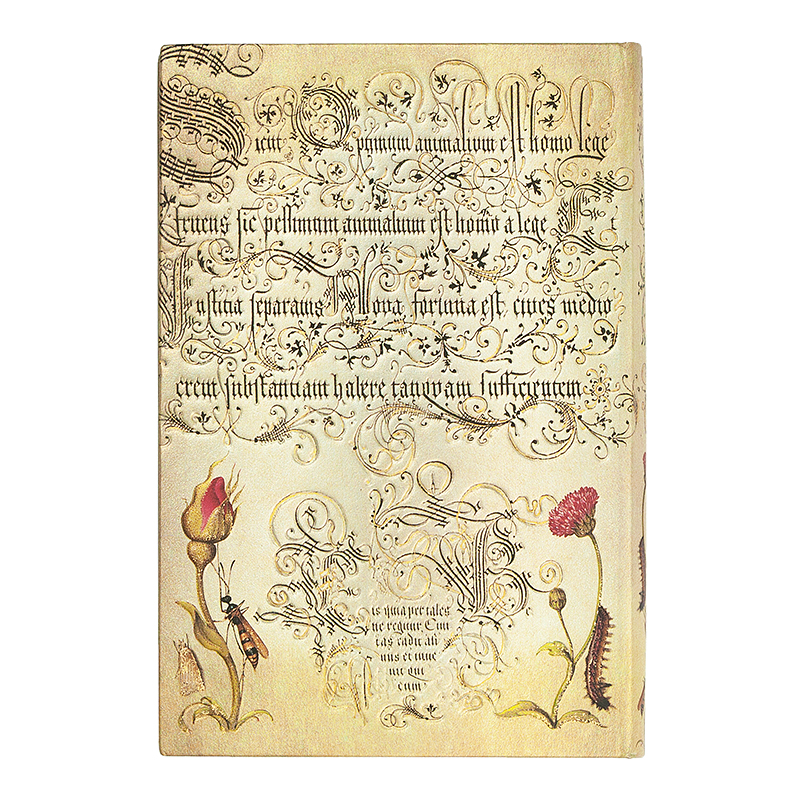 Sicut Optimum animalium est homo lege
fruens sic pessimum animalium est homo a lege Et
Iustitia separatus Nova fortuna est, cives medio
crem substantiam habere tanquam sufficientem
is quia per tales
ne regitur Civi
tas radit ali
nus et inve
nit qui
cum